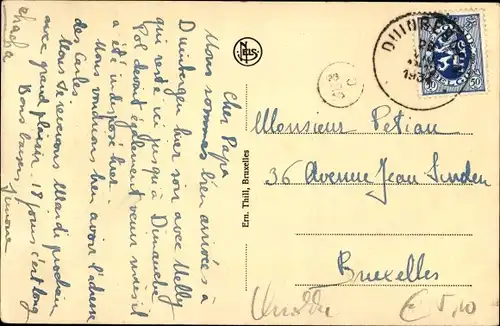 Cher Papa
Nous sommes bien arrivés à
Duinbergen hier soir avec Nelly
qui reste ici jusqu'à Dimanche
Pol devait également venir mais il
a été indisposé hier.
Nous voudrions bien avoir l'adresse
des Carlos.
Nous te reverrons Mardi prochain
avec grand plaisir. 18 jours c'est long
chacha
Bons baisers,
Simone
NELS
Ern. Thill, Bruxelles
DUINBERG
193
50
50
Monsieur Petiau
36 Avenue Jean Linden
Bruxelles
€ 5,10